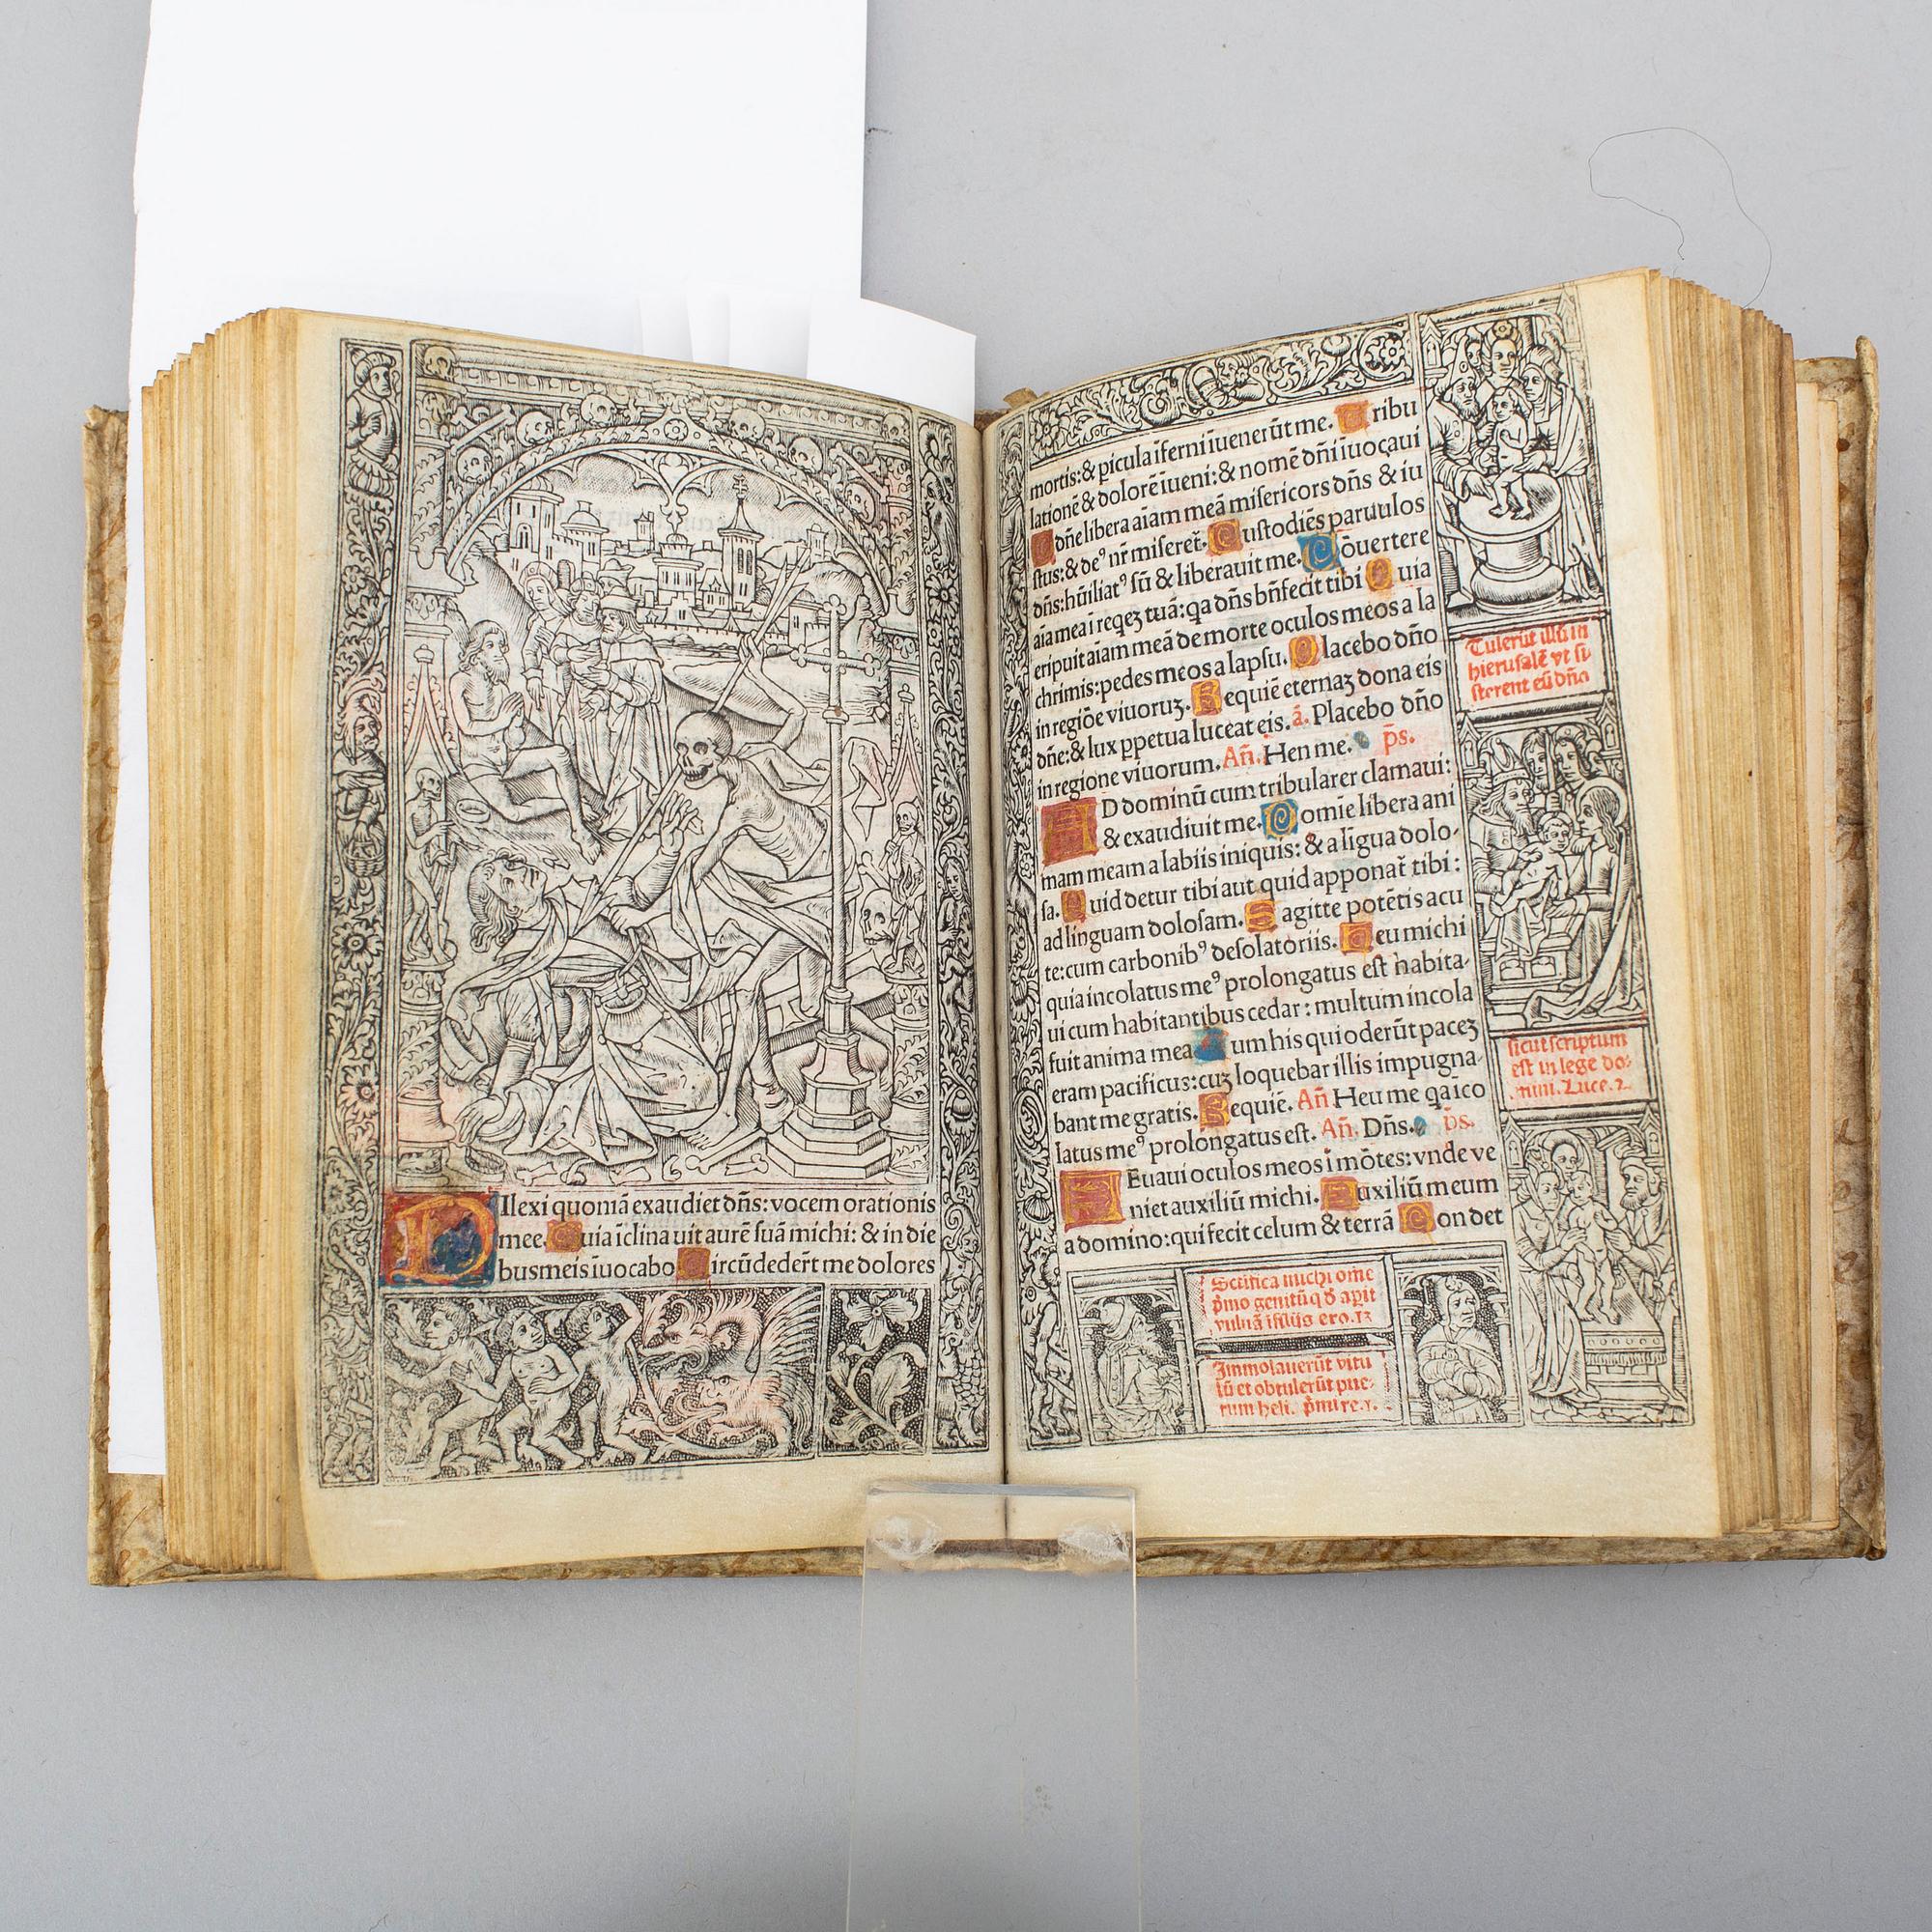 Dilexi quoniā exaudiet dñs: vocem orationis
mee. Quia īclinauit aurē suā michi: & in die
bus meis iuocabo Circūdedert̄ me dolores
mortis: & picula īferni īuenerūt me. Tribu
lationē & dolorē īueni: & nomē dñi īuocaui
O dñe libera aīam meā misericors dñs & iu
stus: & deꝰ nr̄ miseret̄. Custodiēs paruulos
dñs: hūiliatꝰ sū & liberauit me. Cōuertere
aīa mea ī reqeȝ tuā: qa dñs bñfecit tibi Quia
eripuit aīam meā de morte oculos meos a la
chrimis: pedes meos a lapsu. Placebo dño
in regiōe viuoruȝ. Requiē eternaȝ dona eis
dñe: & lux ꝑpetua luceat eis. ā. Placebo dño
in regione viuorum. Añ. Hen me. p̄s.
AD dominū cum tribularer clamaui:
& exaudiuit me. Domie libera ani
mam meam a labiis iniquis: & a līgua dolo-
sa. Quid detur tibi aut quid apponat̄ tibi:
ad linguam dolosam. Sagitte potētis acu
te: cum carbonibꝰ desolatoriis. Heu michi
quia incolatus meꝰ prolongatus est habita-
ui cum habitantibus cedar: multum incola
fuit anima mea Cum his qui oderūt paceȝ
eram pacificus: cuȝ loquebar illis impugna-
bant me gratis. Requiē. Añ Heu me qa īco
latus meꝰ prolongatus est. Añ. Dñs. p̄s.
LEuaui oculos meos ī mōtes: vnde ve
niet auxiliū michi. Auxiliū meum
a domino: qui fecit celum & terrā Non det
Tulerūt illū in
hierusalē vt si-
sterent eū dño
sicut scriptum
est in lege do-
mini. Luce. 2.
Sctifica michi ome
p̄mo genitū q d̄ apit
vuluā ī filijs ero. 13
Immolauerūt vitu
lū et obtulerūt pue-
rum heli. p̄mi re. 1.